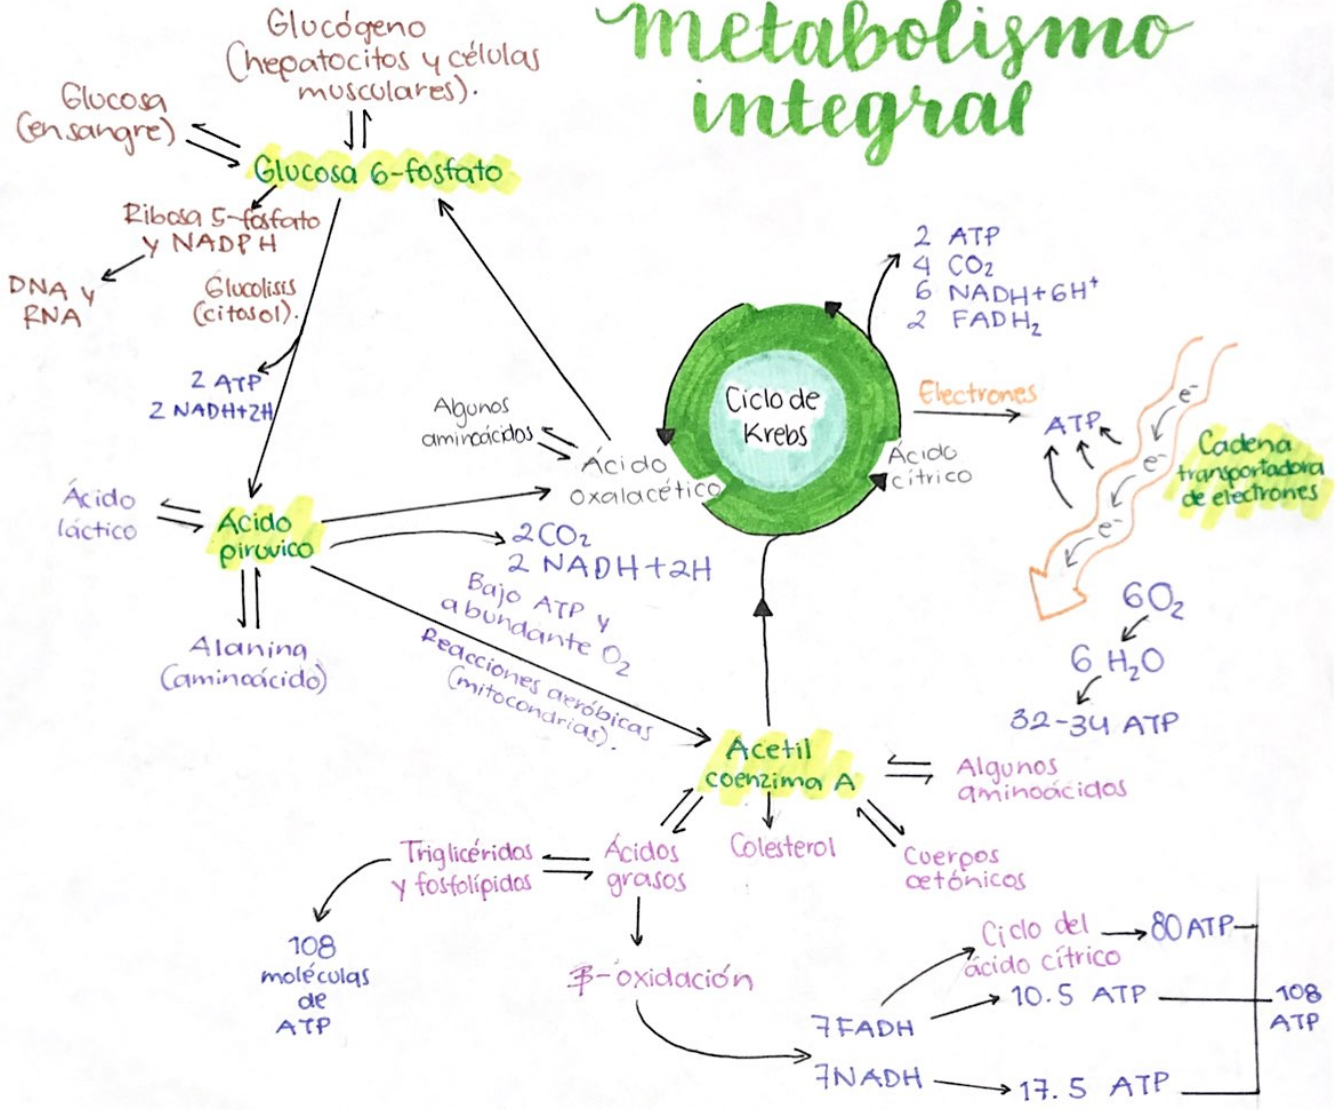 metabolismo
integral
Glucógeno
(hepatocitos y células
musculares).
Glucosa
(en sangre)
Glucosa 6-fosfato
Ribosa 5-fosfato
y NADPH
DNA y
RNA
Glucolisis
(citosol).
2 ATP
2 NADH+2H
Ácido
láctico
Ácido
pirúvico
Alanina
(aminoácido)
Algunos
aminoácidos
Ácido
oxalacético
2CO₂
2 NADH+2H
Bajo ATP y
abundante O₂
Reacciones aeróbicas
(mitocondrias).
Ciclo de
Krebs
2 ATP
4 CO₂
6 NADH+6H⁺
2 FADH₂
Electrones
Ácido
cítrico
ATP
e⁻
e⁻
e⁻
Cadena
transportadora
de electrones
6O₂
6 H₂O
32-34 ATP
Acetil
coenzima A
Algunos
aminoácidos
Triglicéridos
y fosfolípidos
Ácidos
grasos
Colesterol
Cuerpos
cetónicos
108
moléculas
de
ATP
β-oxidación
7FADH
7NADH
Ciclo del
ácido cítrico
80 ATP
10.5 ATP
17.5 ATP
108
ATP